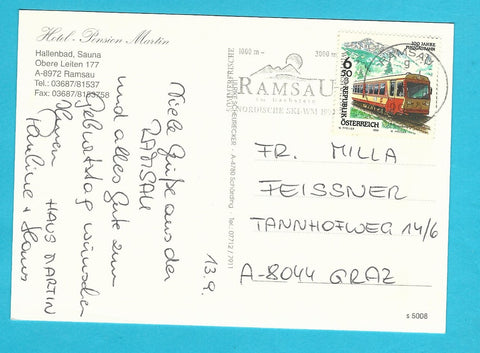 Hotel-Pension Martin
Hallenbad, Sauna
Obere Leiten 177
A-8972 Ramsau
Tel.: 03687/81537
Fax: 03687/8153758
13.9.
Viele Grüße aus der
RAMSAU
und alles Gute zum
Geburtstag wünschen
Ihnen
HAUS MARTIN
Pauline + Hans
A-8700
1000 m – 2000 m
RAMSAU
am Dachstein
NORDISCHE SKI-WM
RAMSAU
100 JAHRE
6
50
REPUBLIK
ÖSTERREICH
FR. MILLA
FEISSNER
TANNHOFWEG 14/6
A-8044 GRAZ
s 5008